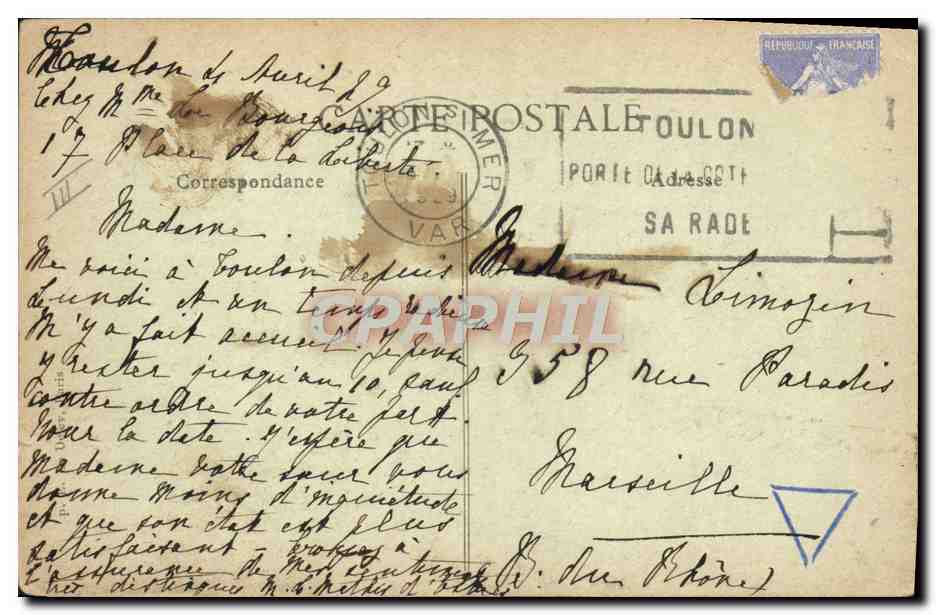 Toulon 4 Avril 29
Chez Mme de Bourgeois
17 Place de la Liberté.
III
CARTE POSTALE
Correspondance
Adresse
RÉPUBLIQUE FRANÇAISE
TOULON S. MER
VAR
TOULON
PORT DE LA COTE
SA RADE
Madame.
Me voici à Toulon depuis
Lundi et un temps radieux
m'y a fait accueil. Je pense
y rester jusqu'au 10, sauf
contre ordre de votre part
pour la date. J'espère que
Madame votre sœur vous
donne moins d'inquiétude
et que son état est plus
satisfaisant - Croyez à
l'assurance de mes sentiments
très distingués M.
Madame Limozin
358 rue Paradis
Marseille
(B. du Rhône)
CPARPHIL